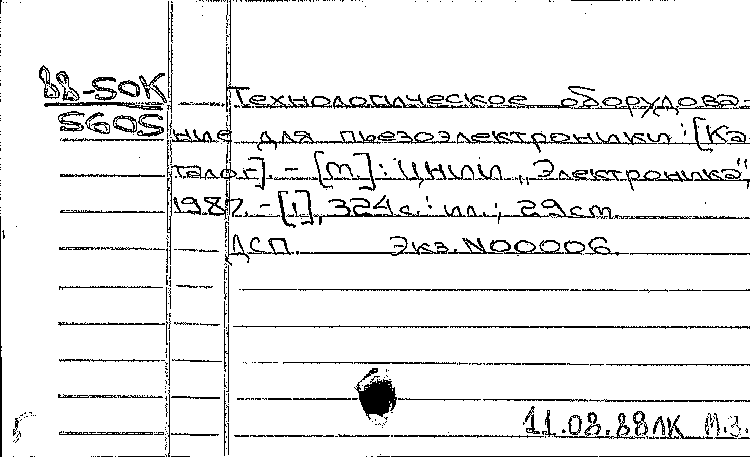 88-50К Технологическое оборудова-
5605 ние для пьезоэлектроники: [Ка
талог]. - [М.]: ЦНИИ „Электроника",
1987. - [1], 324 с.: ил.; 29 см.
ДСП. Экз. N00006.
11.08.88 ЛК М.З.